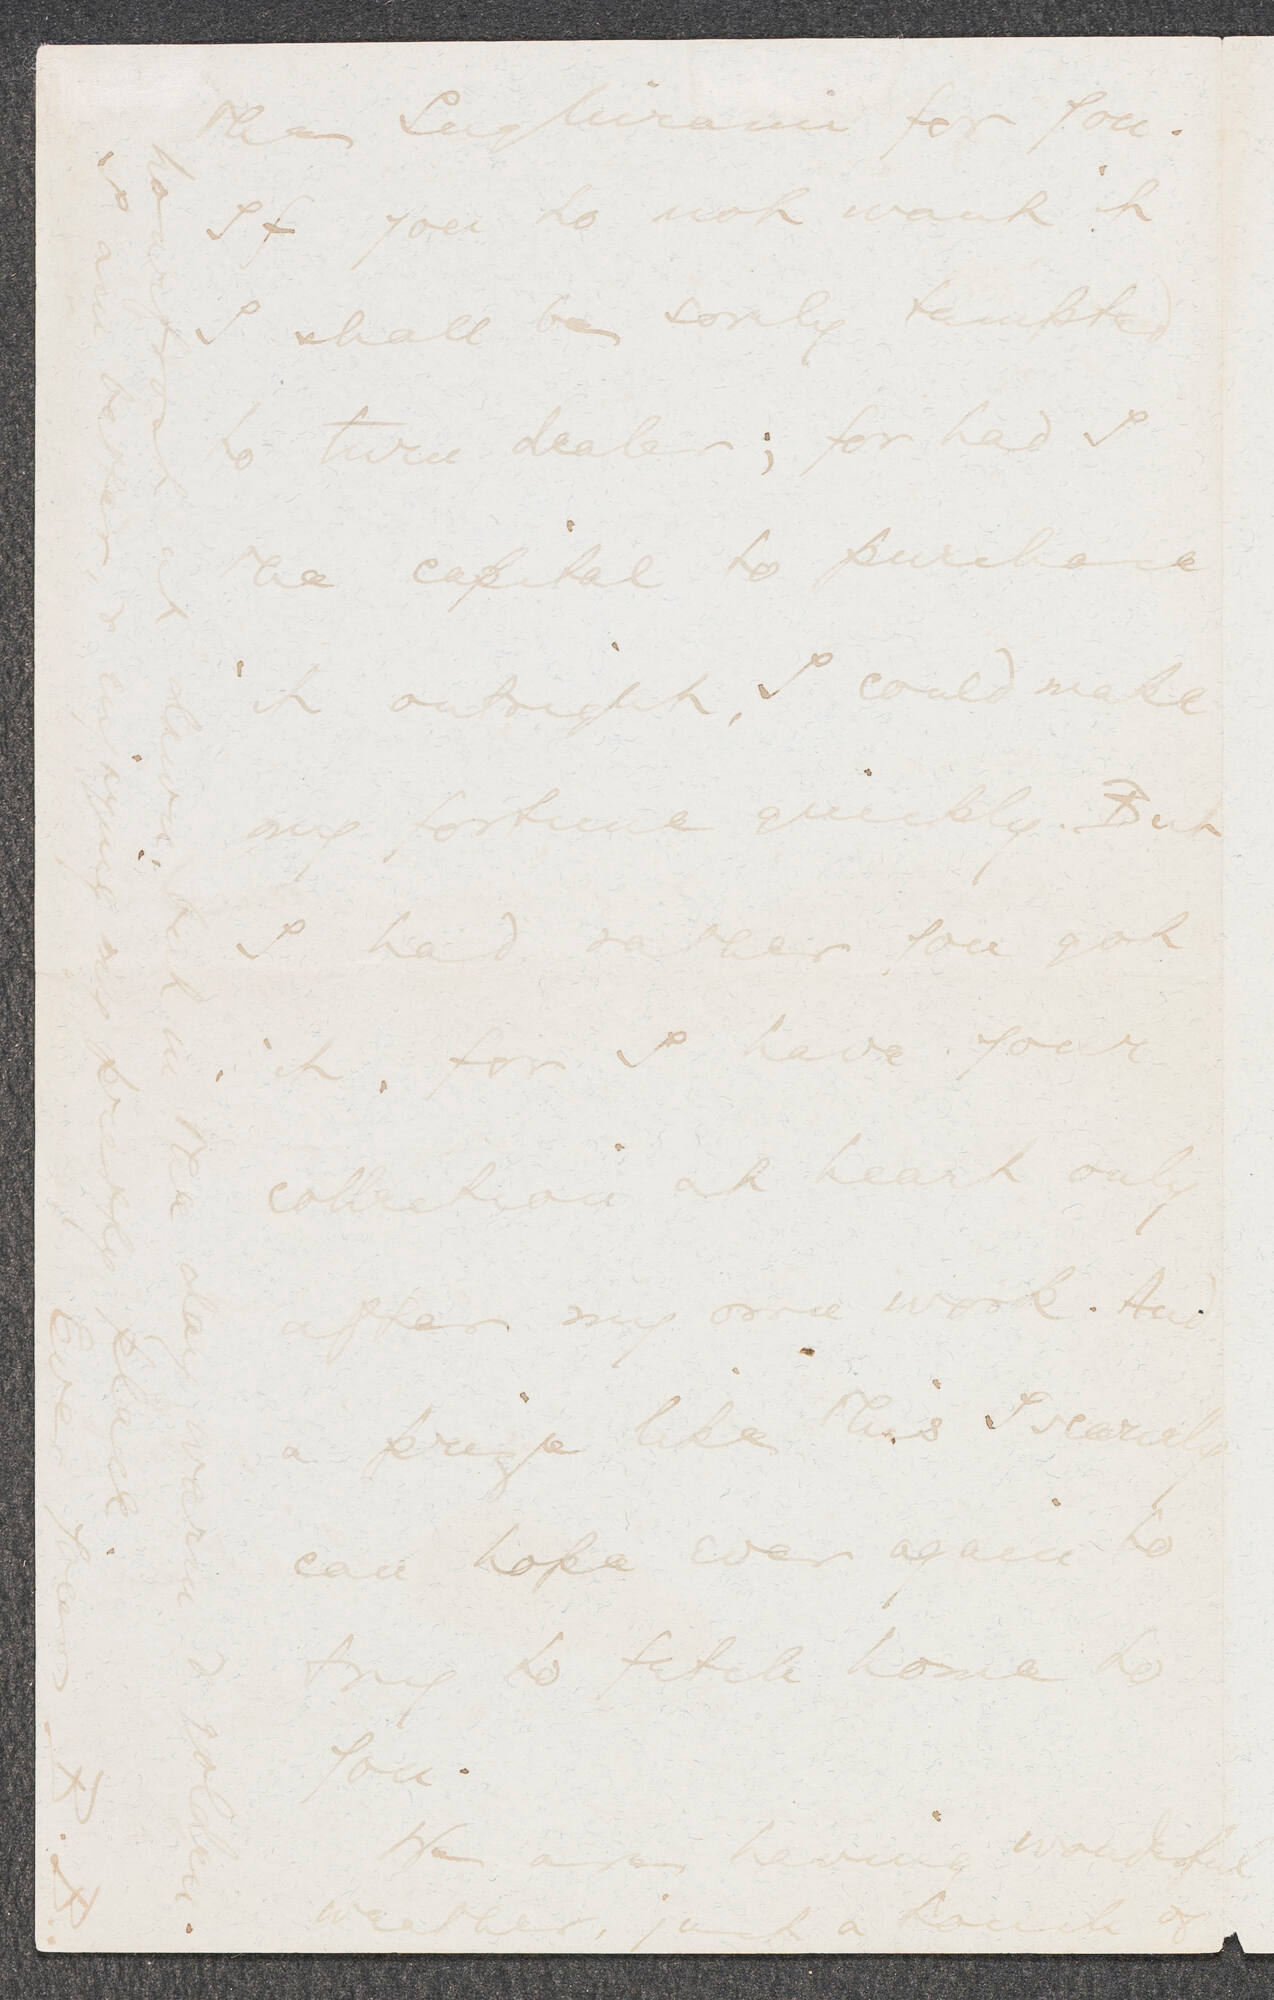 the Inghirami for you.
If you do not want it
I shall be sorely tempted
to turn dealer; for had I
the capital to purchase
it outright, I could make
my fortune quickly. But
I had rather you got
it, for I have your
collection at heart only
after my own work. And
a prize like this I scarcely
can hope ever again to
try to fetch home to
you.
We are having wonderful
weather, just a touch of
hoarfrost at dawn, but in the day warm & golden.
I am better, & enjoying my
Ever yours
B. B.